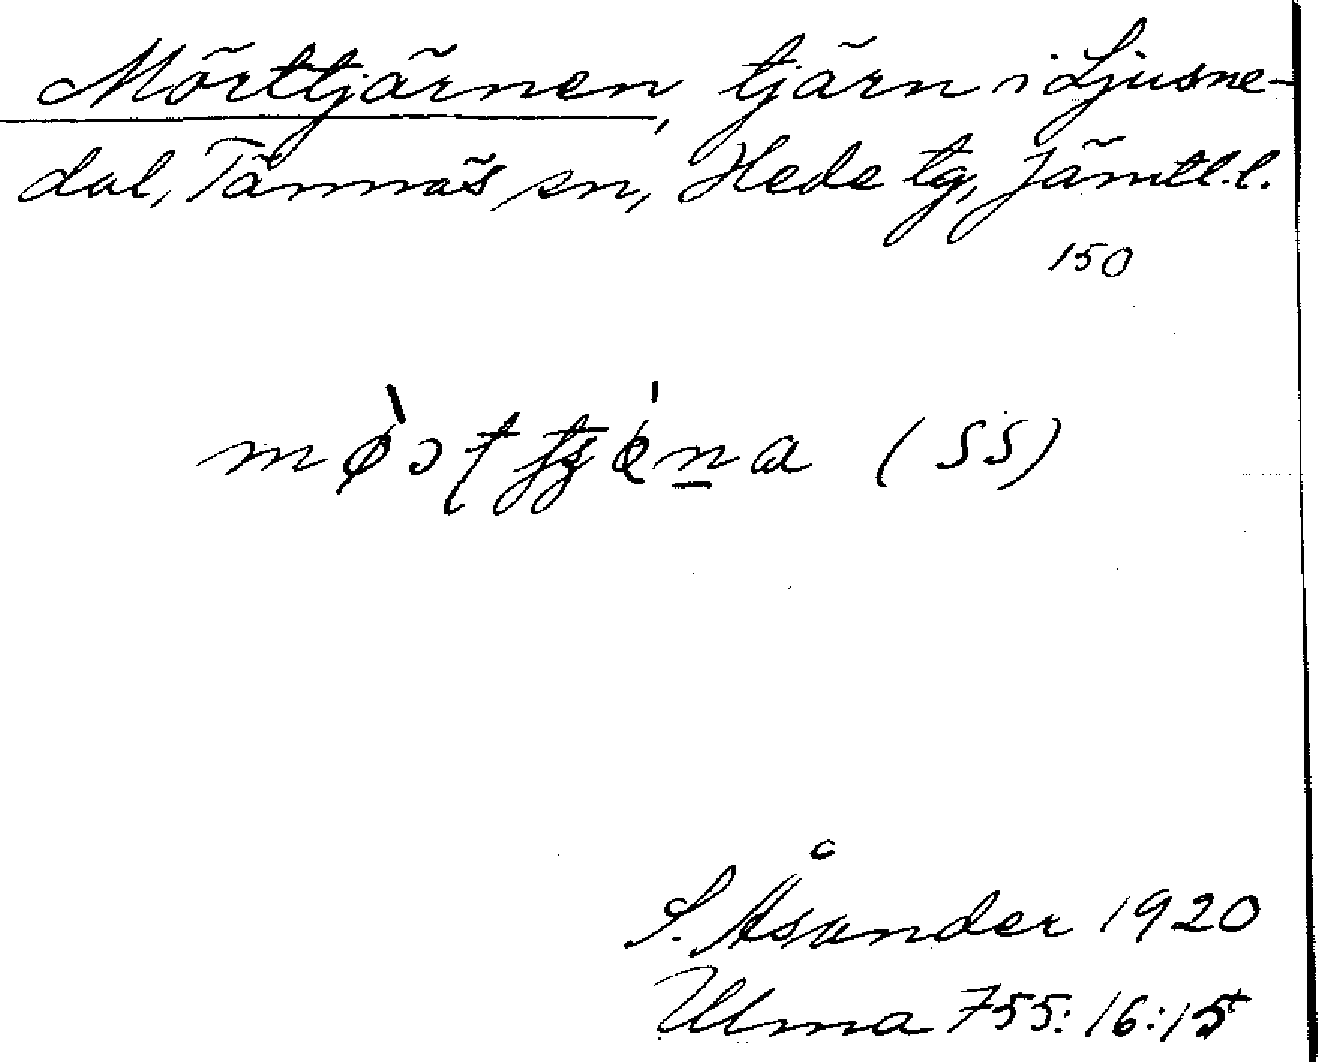 Mörttjärnen, tjärn i Ljusne-
dal, Tännäs sn, Hede tg, Jämtl.l.
150
(SS)
S. Åsander 1920
Ulma 755:16:15